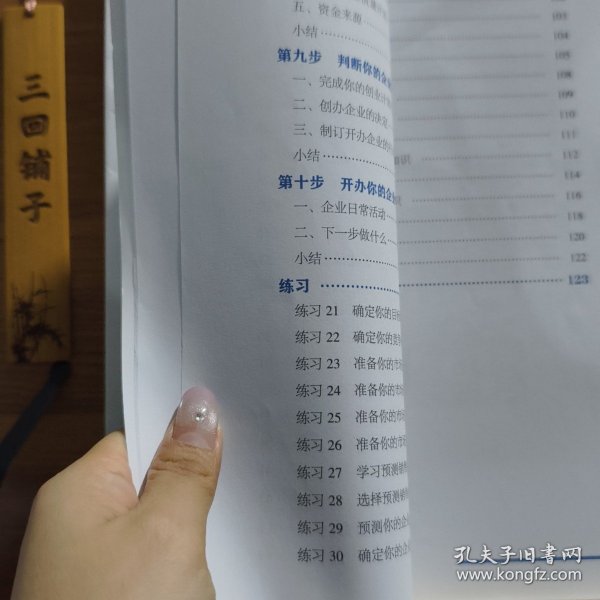 三回铺子
五、资金来源
小结
第九步 判断你的企
一、完成你的创业计
二、创办企业的决定
三、制订开办企业的
小结
第十步 开办你的企
一、企业日常活动
二、下一步做什么
小结
练习
练习 21 确定你的目
练习 22 确定你的竞争
练习 23 准备你的市场
练习 24 准备你的市场
练习 25 准备你的市
练习 26 准备你的市场
练习 27 学习预测销
练习 28 选择预测销
练习 29 预测你的企
练习 30 确定你的企
103
104
105
108
109
110
111
识 112
114
116
118
120
122
123
孔夫子旧书网
www.kongfz.com